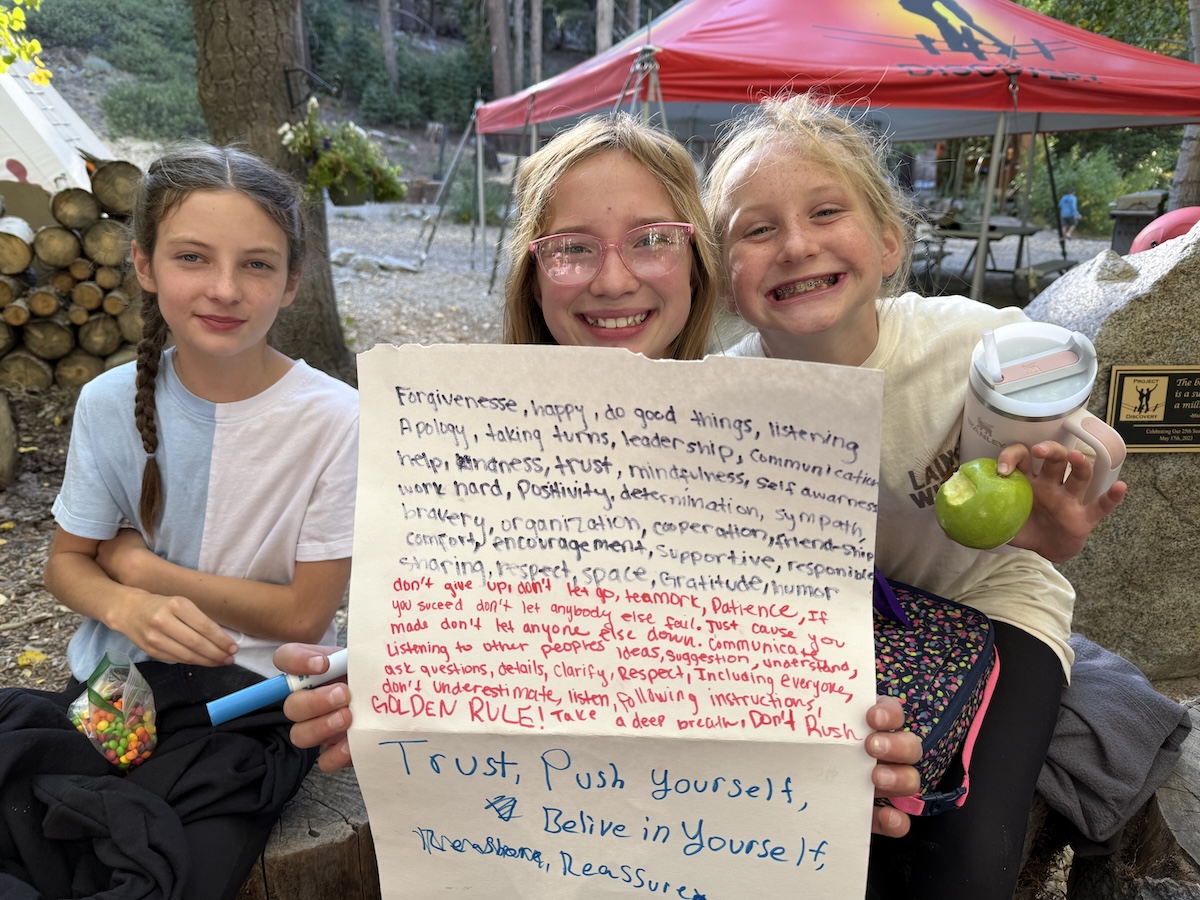 DISCOVERY
Forgivenesse, happy, do good things, listening
Apology, taking turns, leadership, communication
help, kindness, trust, mindfulness, self awarness
work hard, Positivity, determination, sympath,
bravery, organization, cooperation, friend-ship
comfort, encouragement, supportive, responsible
sharing, respect, space, Gratitude, humor
don't give up, don't let go, teamork, Patience, If
you suceed don't let anybody else fail. Just cause you
made don't let anyone else down. Communicate,
Listening to other peoples ideas, suggestion, understand,
ask questions, details, Clarify, Respect, Including everyone,
don't underestimate, listen, following instructions,
GOLDEN RULE! Take a deep breath, Don't Rush
Trust, Push Yourself,
Belive in Yourself,
Reassure
STANLEY
PROJECT
DISCOVERY
The b
is a su
a milli
Celebrating Our 25th
May 17th, 2023